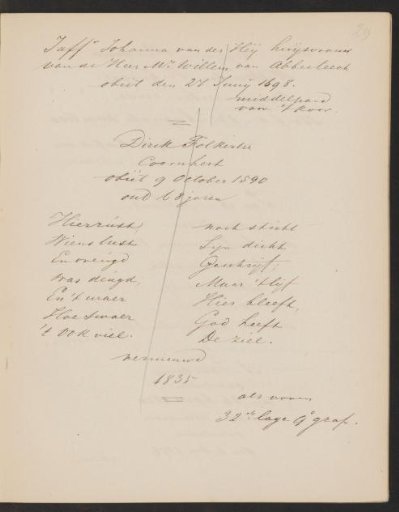 29
Juffr Johanna van der Heij huijsvrouw
van de Heer Mr Willem van Abbesteech
obiit den 27 Junij 1698.
middelpand
van 't koor
Dirck Folkertsz
Coornhert
obiit 9 October 1590
oud 68 jaren
Hierrust,
Wiens lust
En vreugd
Was deugd
En 't waer
Hoe swaer
't Ook viel.
noch sticht
Syn dicht
Geschrijf;
Maar 't lyf
Hier bleeft,
God heeft
De ziel.
vernieuwd
1835
als voren
32ste lage 9e graf.